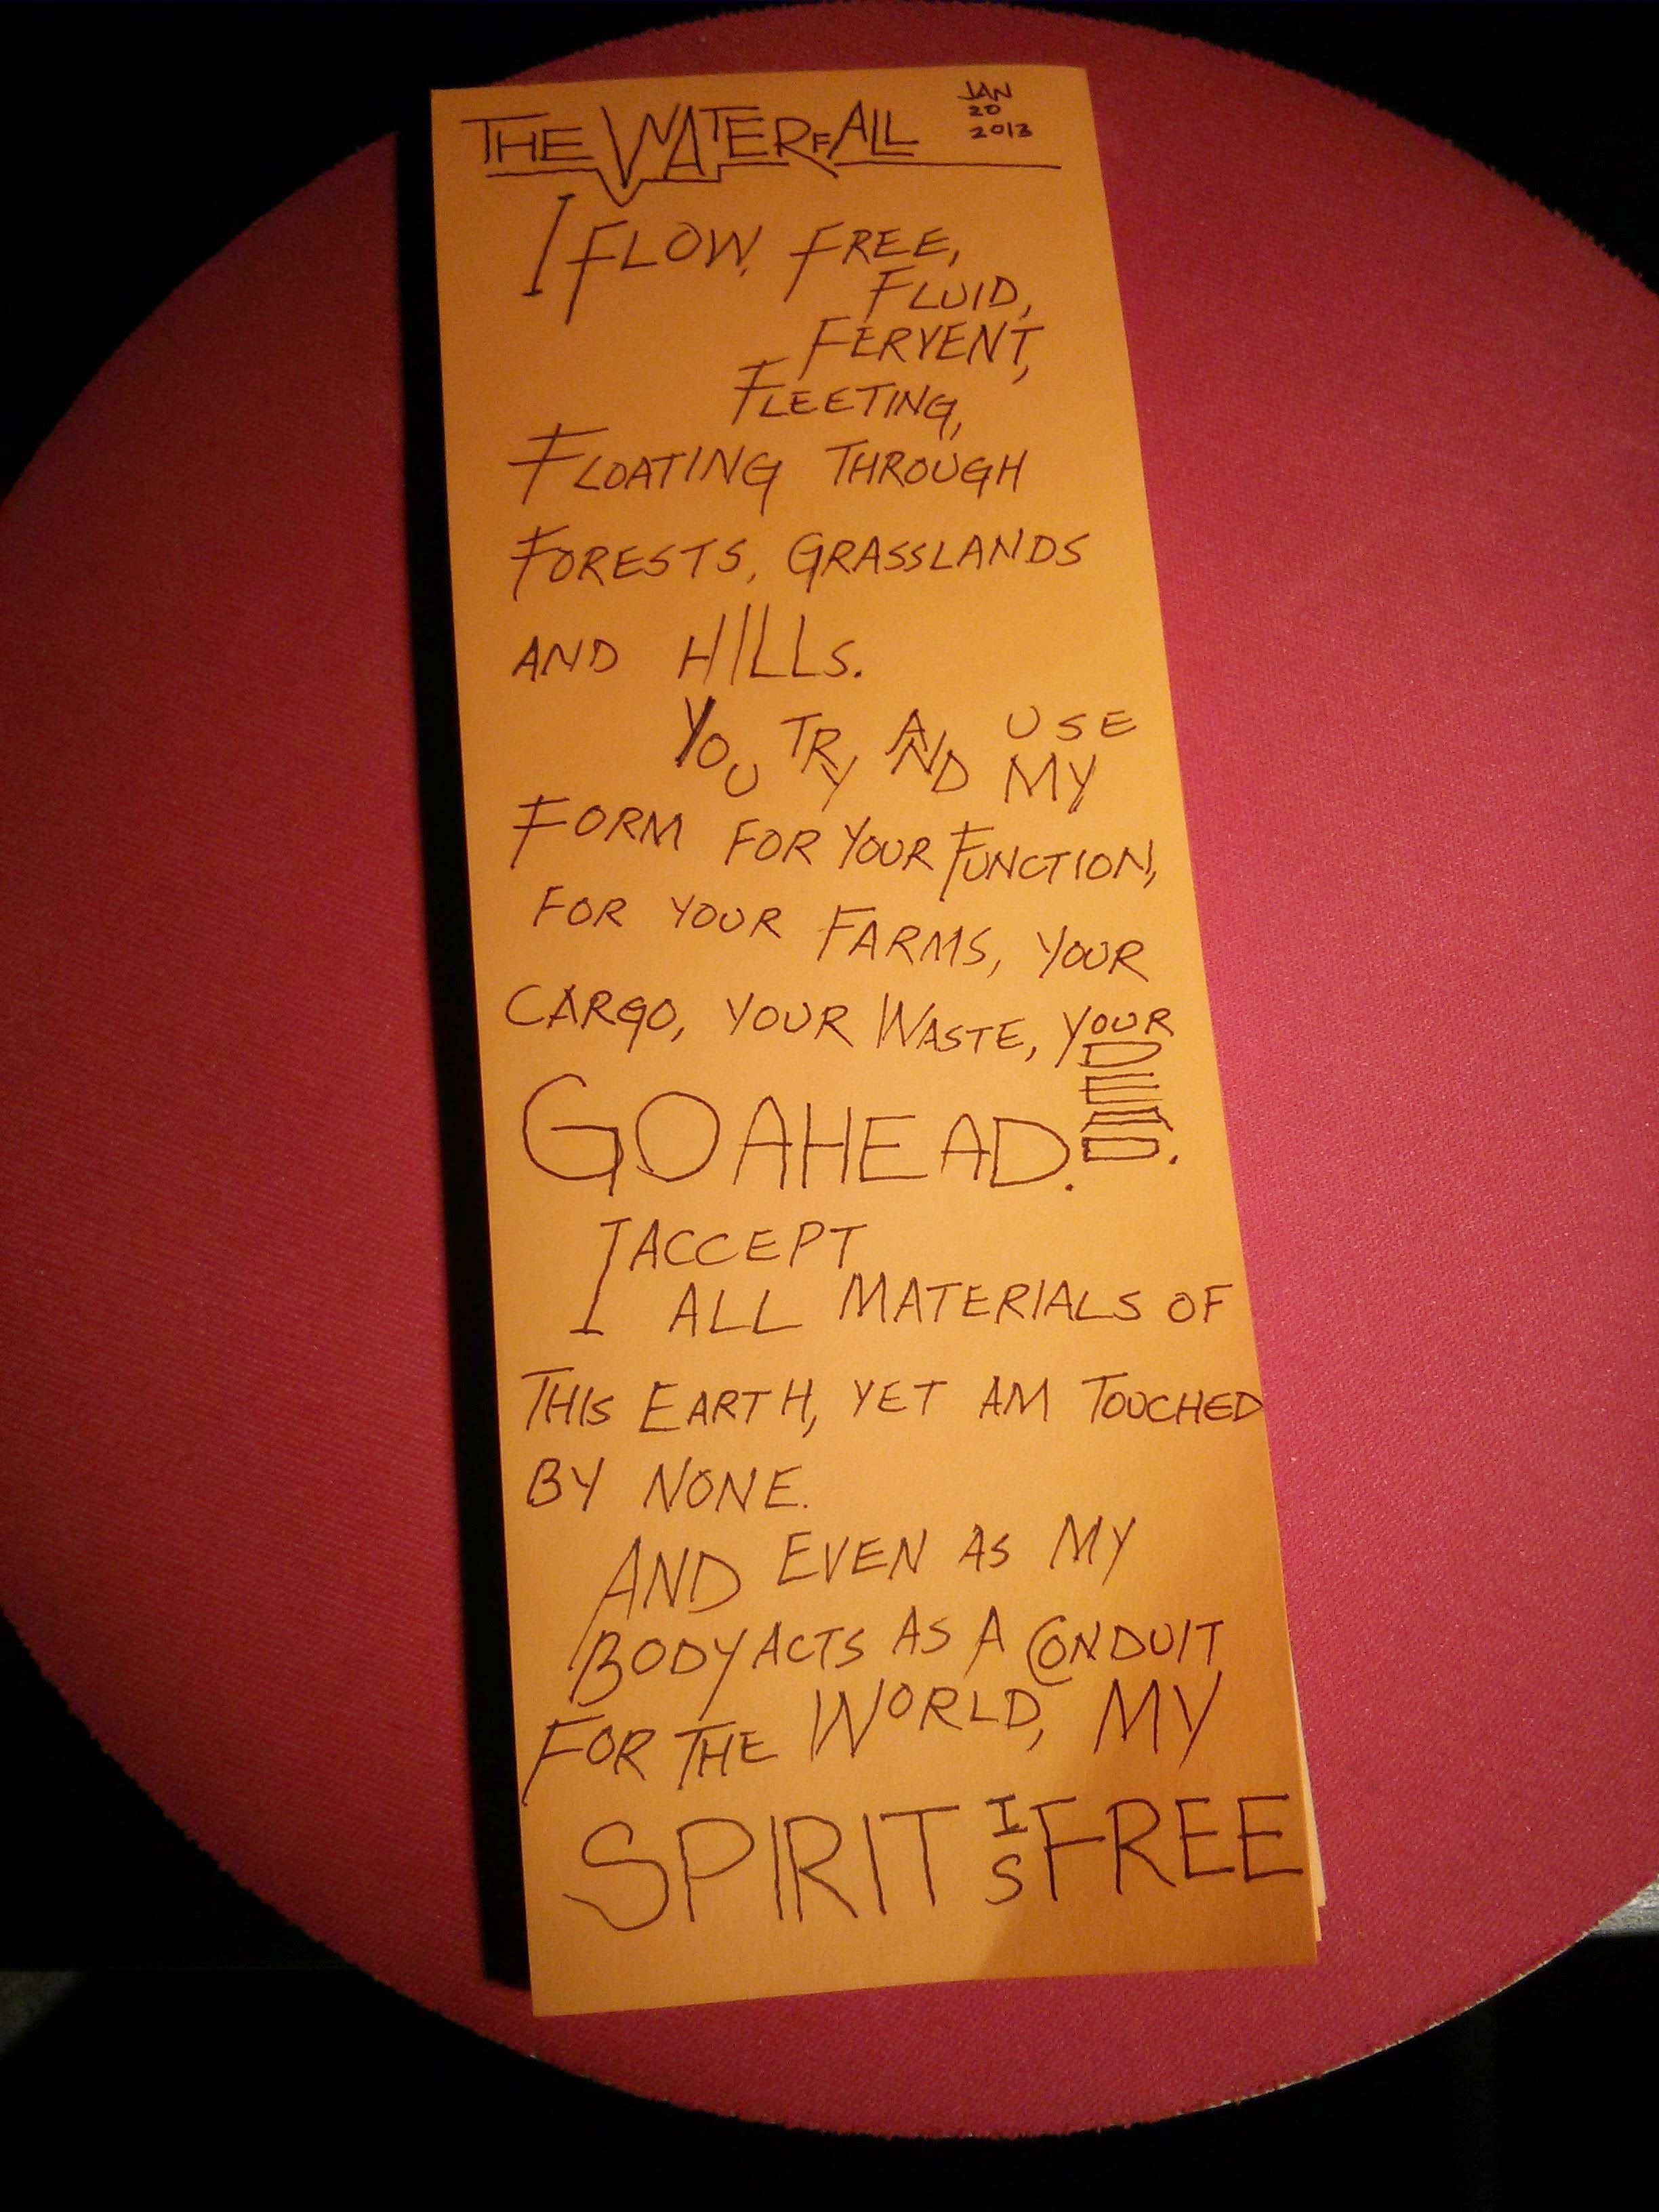 THE WATERFALL
JAN
20
2013
I FLOW. FREE,
FLUID,
FERVENT,
FLEETING,
FLOATING THROUGH
FORESTS, GRASSLANDS
AND HILLS.
YOU TRY AND USE
MY
FORM FOR YOUR FUNCTION,
FOR YOUR FARMS, YOUR
CARGO, YOUR WASTE, YOUR
DEAD.
GO AHEAD.
I ACCEPT
ALL MATERIALS OF
THIS EARTH, YET AM TOUCHED
BY NONE.
AND EVEN AS MY
BODY ACTS AS A CONDUIT
FOR THE WORLD, MY
SPIRIT IS FREE